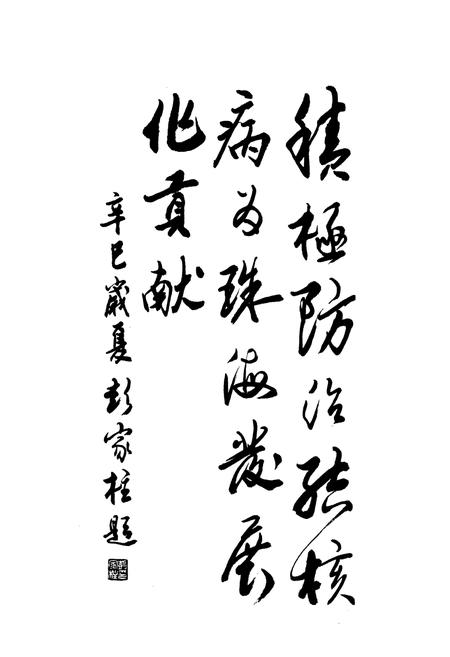 積極防治結核
病为珠海发展
作貢献
辛巳歲夏彭家柱題